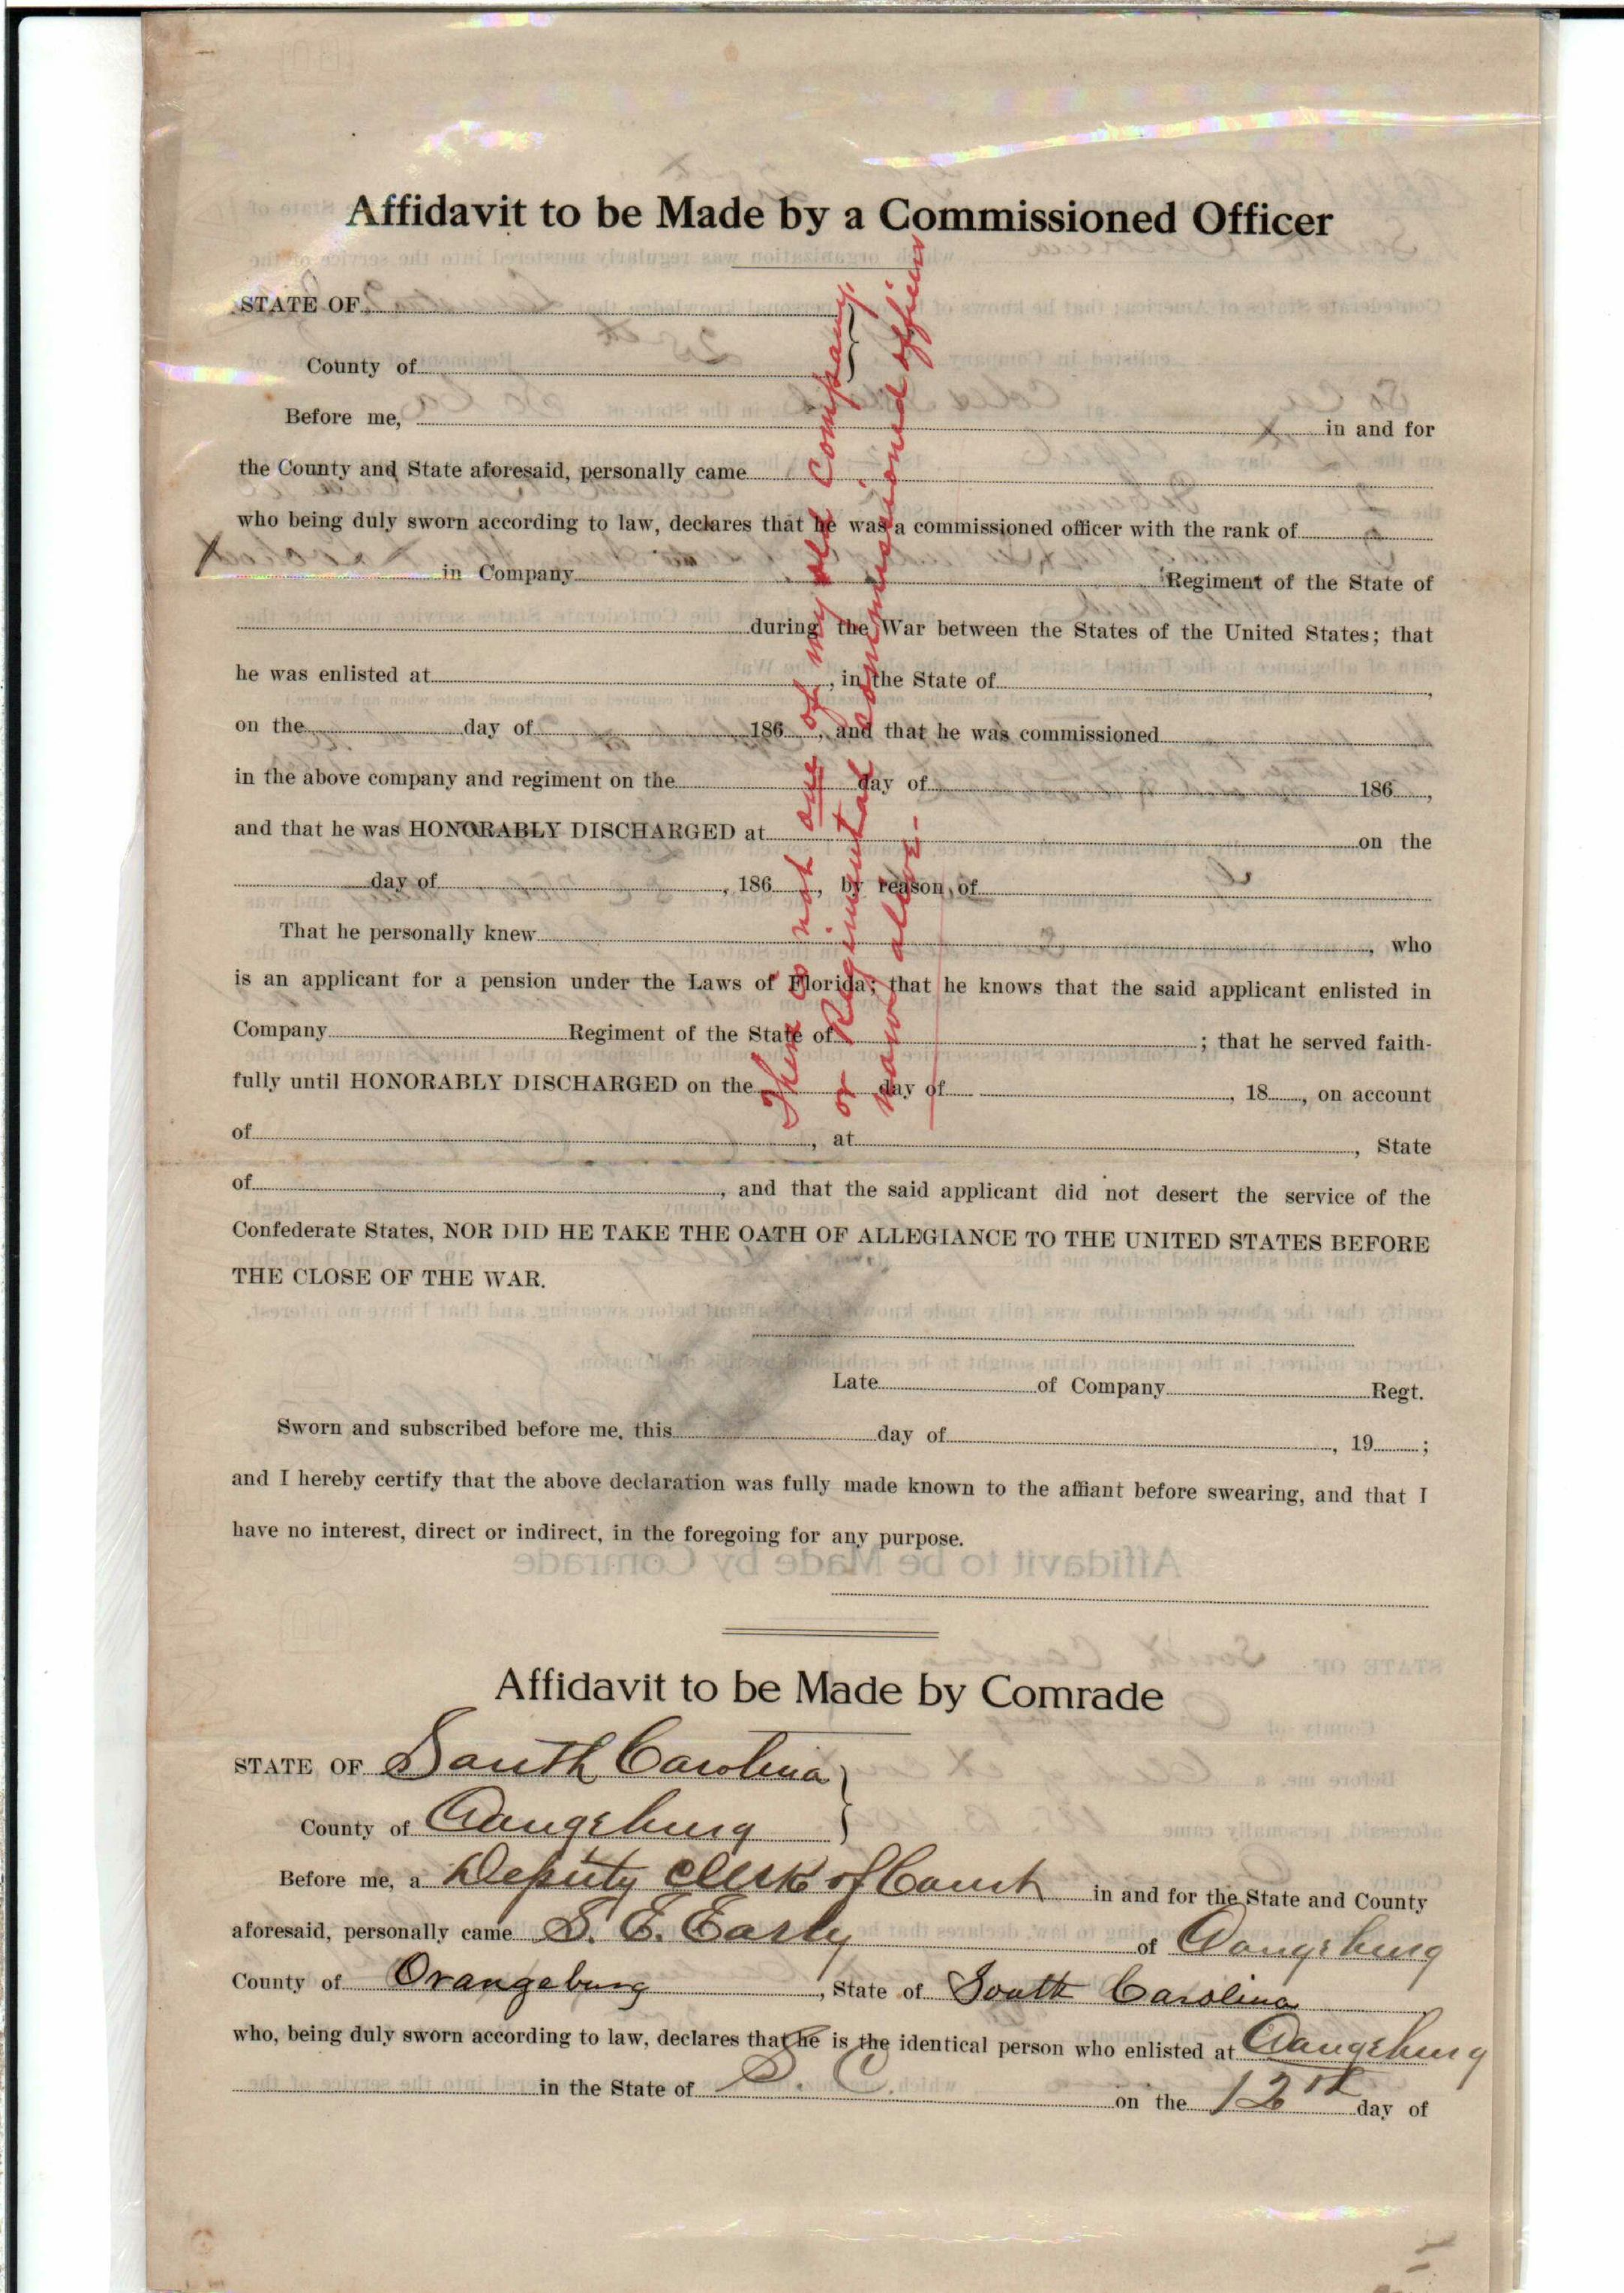 Affidavit to be Made by a Commissioned Officer
STATE OF
County of
Before me, in and for
the County and State aforesaid, personally came
who being duly sworn according to law, declares that he was a commissioned officer with the rank of
in Company Regiment of the State of
during the War between the States of the United States; that
he was enlisted at , in the State of ,
on the day of 186 , and that he was commissioned
in the above company and regiment on the day of 186 ,
and that he was HONORABLY DISCHARGED at on the
day of , 186 , by reason of
That he personally knew , who
is an applicant for a pension under the Laws of Florida; that he knows that the said applicant enlisted in
Company Regiment of the State of ; that he served faith-
fully until HONORABLY DISCHARGED on the day of , 18 , on account
of , at , State
of , and that the said applicant did not desert the service of the
Confederate States, NOR DID HE TAKE THE OATH OF ALLEGIANCE TO THE UNITED STATES BEFORE
THE CLOSE OF THE WAR.
Late of Company Regt.
Sworn and subscribed before me, this day of , 19 ;
and I hereby certify that the above declaration was fully made known to the affiant before swearing, and that I
have no interest, direct or indirect, in the foregoing for any purpose.
There is not one of my old company,
or Regimental commissioned officers
now alive-
Affidavit to be Made by Comrade
STATE OF South Carolina
County of Orangeburg
Before me, a Deputy Clerk of Court in and for the State and County
aforesaid, personally came S. E. Early of Orangeburg
County of Orangeburg , State of South Carolina
who, being duly sworn according to law, declares that he is the identical person who enlisted at Orangeburg
in the State of S. C. on the 12th day of